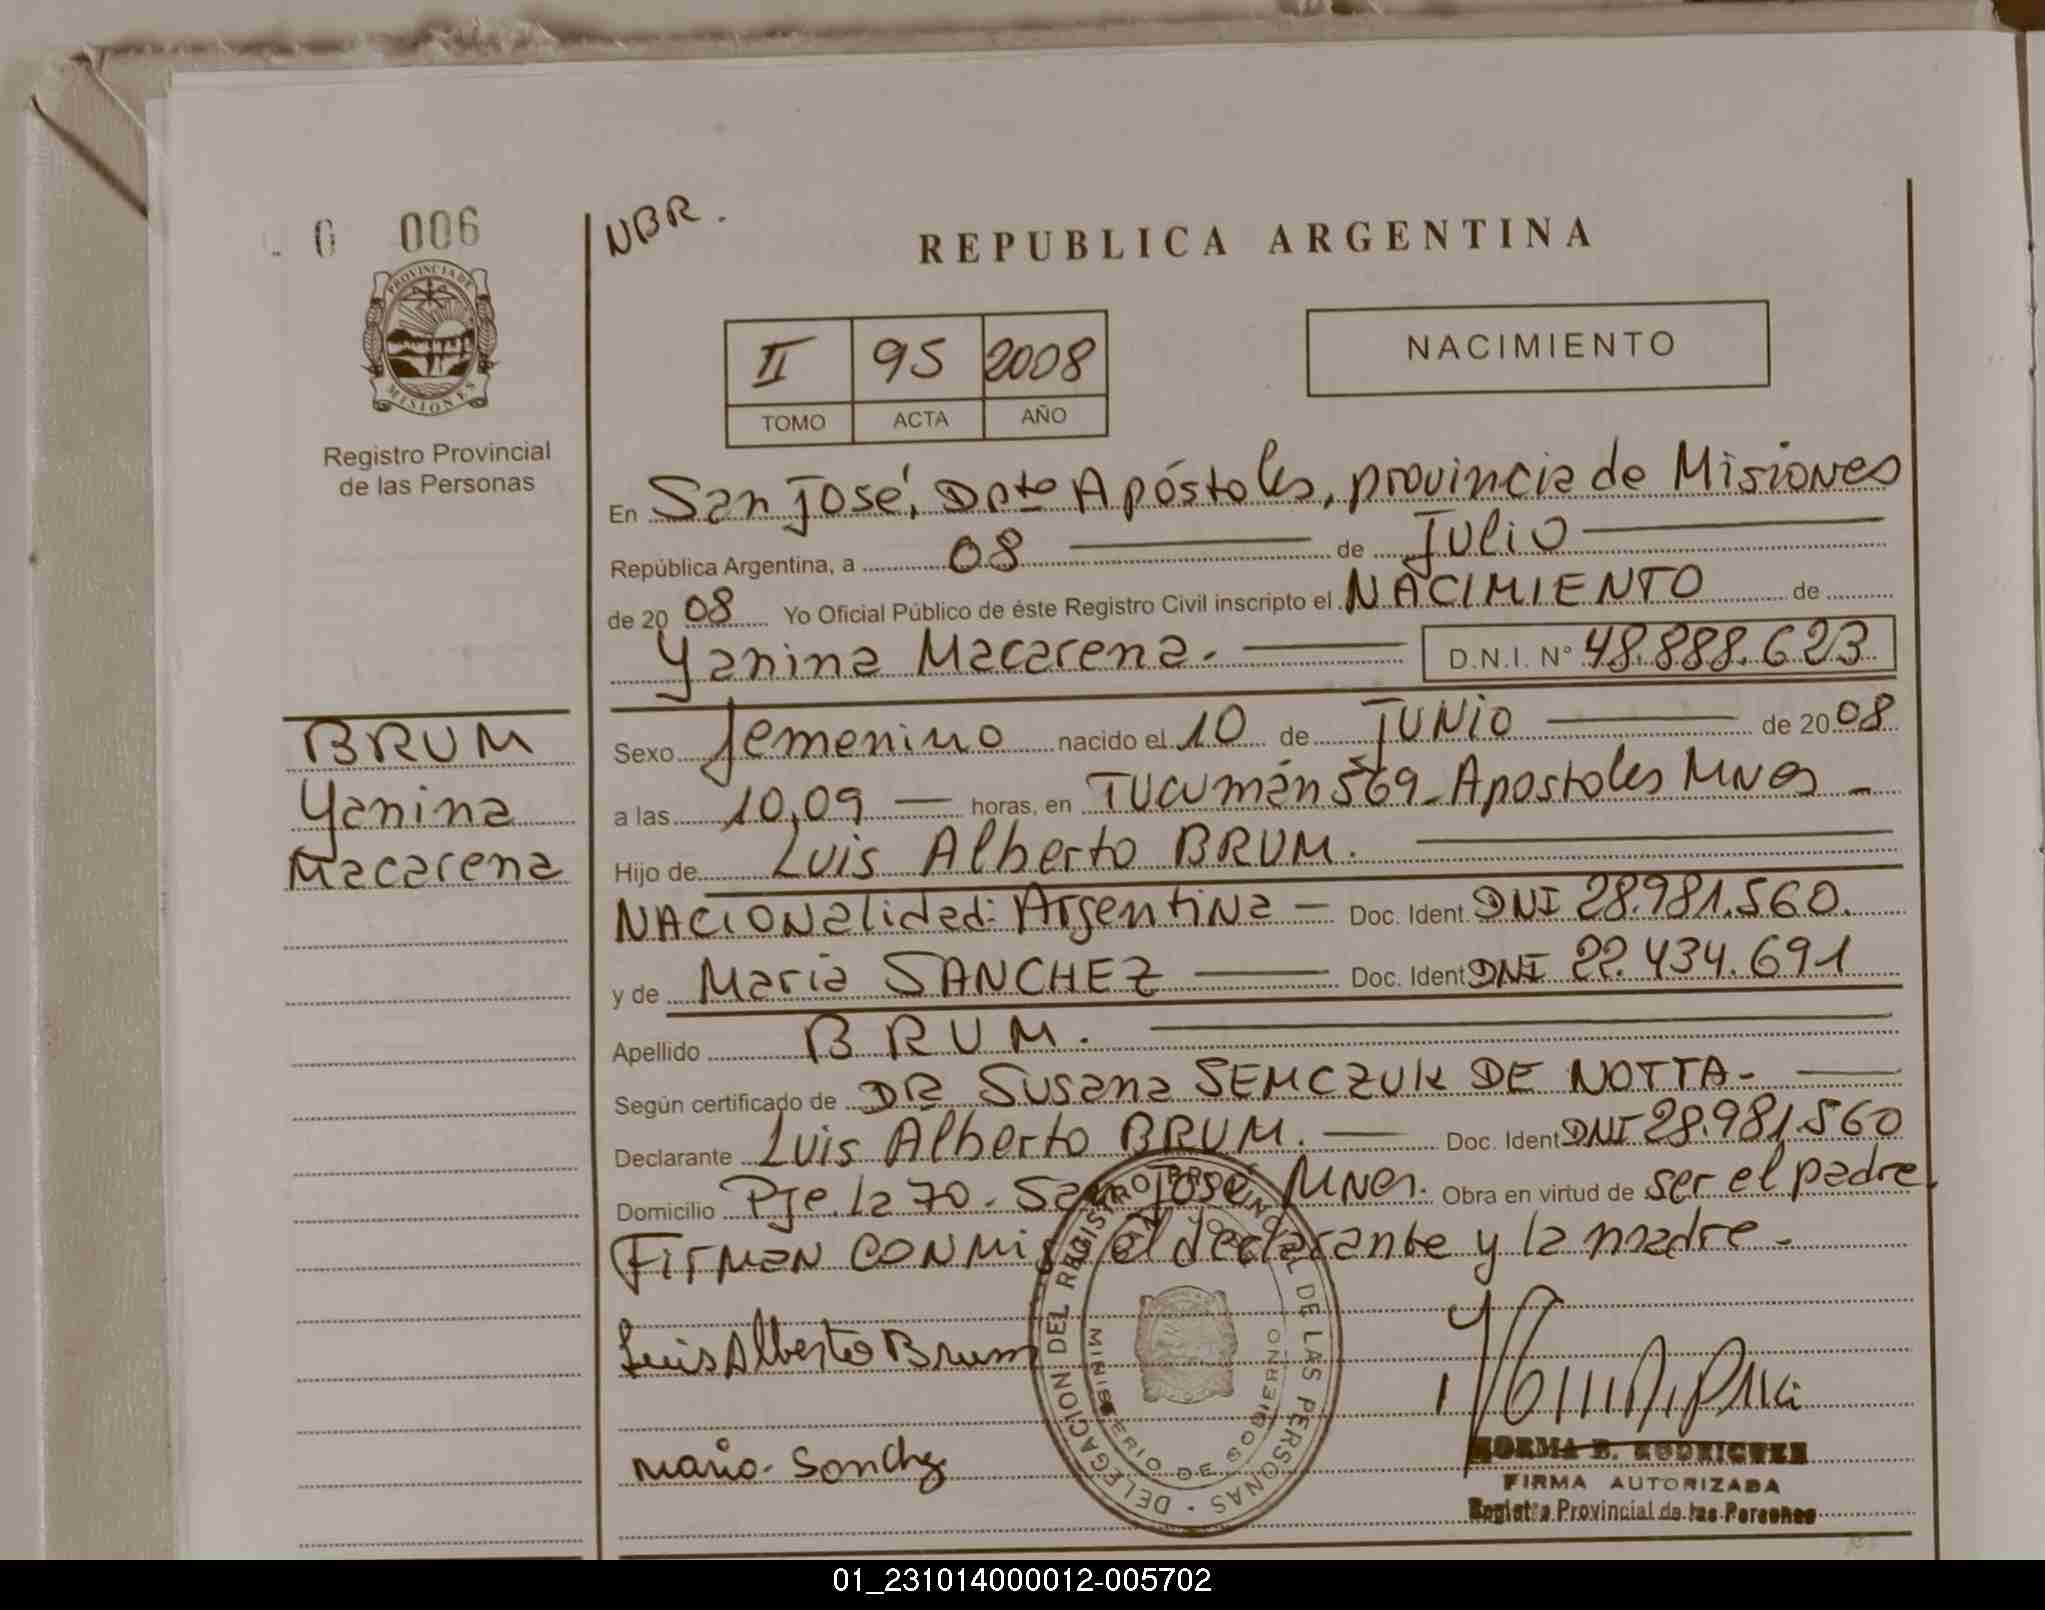 006
NBR.
REPUBLICA ARGENTINA
PROVINCIA DE
MISIONES
Registro Provincial
de las Personas
II 95 2008
TOMO ACTA AÑO
NACIMIENTO
En San José, Dpto Apóstoles, provincia de Misiones
República Argentina, a 08 de Julio
de 20 08 Yo Oficial Público de éste Registro Civil inscripto el NACIMIENTO de
Yanina Macarena. D.N.I. N° 48.888.623
BRUM
Yanina
Macarena
Sexo femenino nacido el 10 de JUNIO de 20 08
a las 10,09 horas, en Tucumán 569 - Apostoles Mnes -
Hijo de Luis Alberto BRUM.
NACIONalidad: Argentina - Doc. Ident. DNI 28.981.560.
y de María SANCHEZ Doc. Ident DNI 22.434.691
Apellido BRUM.
Según certificado de DRa Susana SEMCZUK DE NOTTA-
Declarante Luis Alberto BRUM. Doc. Ident DNI 28.981.560
Domicilio Pje. la 70. San José Mnes. Obra en virtud de ser el padre.
Firman conmigo el declarante y la madre.
Luis Alberto Brum
María Sanchez
DELEGACION DEL REGISTRO PROVINCIAL DE LAS PERSONAS
MINISTERIO DE GOBIERNO
NORMA B. RODRIGUEZ
FIRMA AUTORIZADA
Registro Provincial de las Personas
01_231014000012-005702